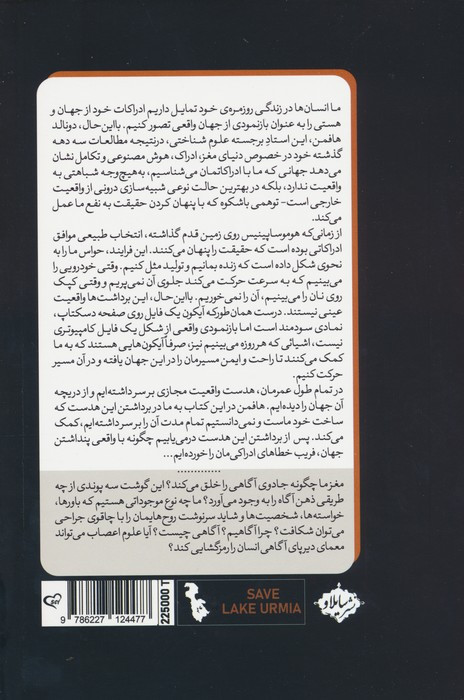 ما انسان‌ها در زندگی روزمره‌ی خود تمایل داریم ادراکات خود از جهان و
هستی را به عنوان بازنمودی از جهان واقعی تصور کنیم. بااین‌حال، دونالد
هافمن، این استادِ برجسته علوم شناختی، درنتیجه مطالعات سه دهه
گذشته خود در خصوص دنیای مغز، ادراک، هوش مصنوعی و تکامل نشان
می‌دهد جهانی که ما با ادراکاتمان می‌شناسیم، به‌هیچ‌وجه شباهتی به
واقعیت ندارد، بلکه در بهترین حالت نوعی شبیه‌سازی درونی از واقعیت
خارجی است- توهمی باشکوه که با پنهان کردن حقیقت به نفع ما عمل
می‌کند.
از زمانی‌که هوموساپینس روی زمین قدم گذاشته، انتخاب طبیعی موافق
ادراکاتی بوده است که حقیقت را پنهان می‌کنند. این فرایند، حواس ما را به
نحوی شکل داده است که زنده بمانیم و تولید مثل کنیم. وقتی خودرویی را
می‌بینیم که به سرعت حرکت می‌کند جلوی آن نمی‌پریم و وقتی کپک
روی نان را می‌بینیم، آن را نمی‌خوریم. بااین‌حال، این برداشت‌ها واقعیت
عینی نیستند. درست همان‌طورکه آیکون یک فایل روی صفحه دسکتاپ،
نمادی سودمند است اما بازنمودی واقعی از شکل یک فایل کامپیوتری
نیست، اشیائی که هرروزه می‌بینیم نیز، صرفاً آیکون‌هایی هستند که به ما
کمک می‌کنند تا راحت و ایمن مسیرمان را در این جهان یافته و در آن مسیر
حرکت کنیم.
در تمام طول عمرمان، هدست واقعیت مجازی بر سر داشته‌ایم و از دریچه
آن جهان را دیده‌ایم. هافمن در این کتاب به ما در برداشتن این هدست که
ساخت خود ماست و نمی‌دانستیم تمام مدت آن را بر سر داشته‌ایم، کمک
می‌کند. پس از برداشتن این هدست درمی‌یابیم چگونه با واقعی پنداشتن
جهان، فریب خطاهای ادراکی‌مان را خورده‌ایم...
مغز ما چگونه جادوی آگاهی را خلق می‌کند؟ این گوشت سه پوندی از چه
طریقی ذهن آگاه را به وجود می‌آورد؟ ما چه نوع موجوداتی هستیم که باورها،
خواسته‌ها، شخصیت‌ها و شاید سرنوشت روح‌هایمان را با چاقوی جراحی
می‌توان شکافت؟ چرا آگاهیم؟ آگاهی چیست؟ آیا علوم اعصاب می‌تواند
معمای دیرپای آگاهی انسان را رمزگشایی کند؟
225000 T
9 786227 124477
SAVE
LAKE URMIA
نشر سایلاو